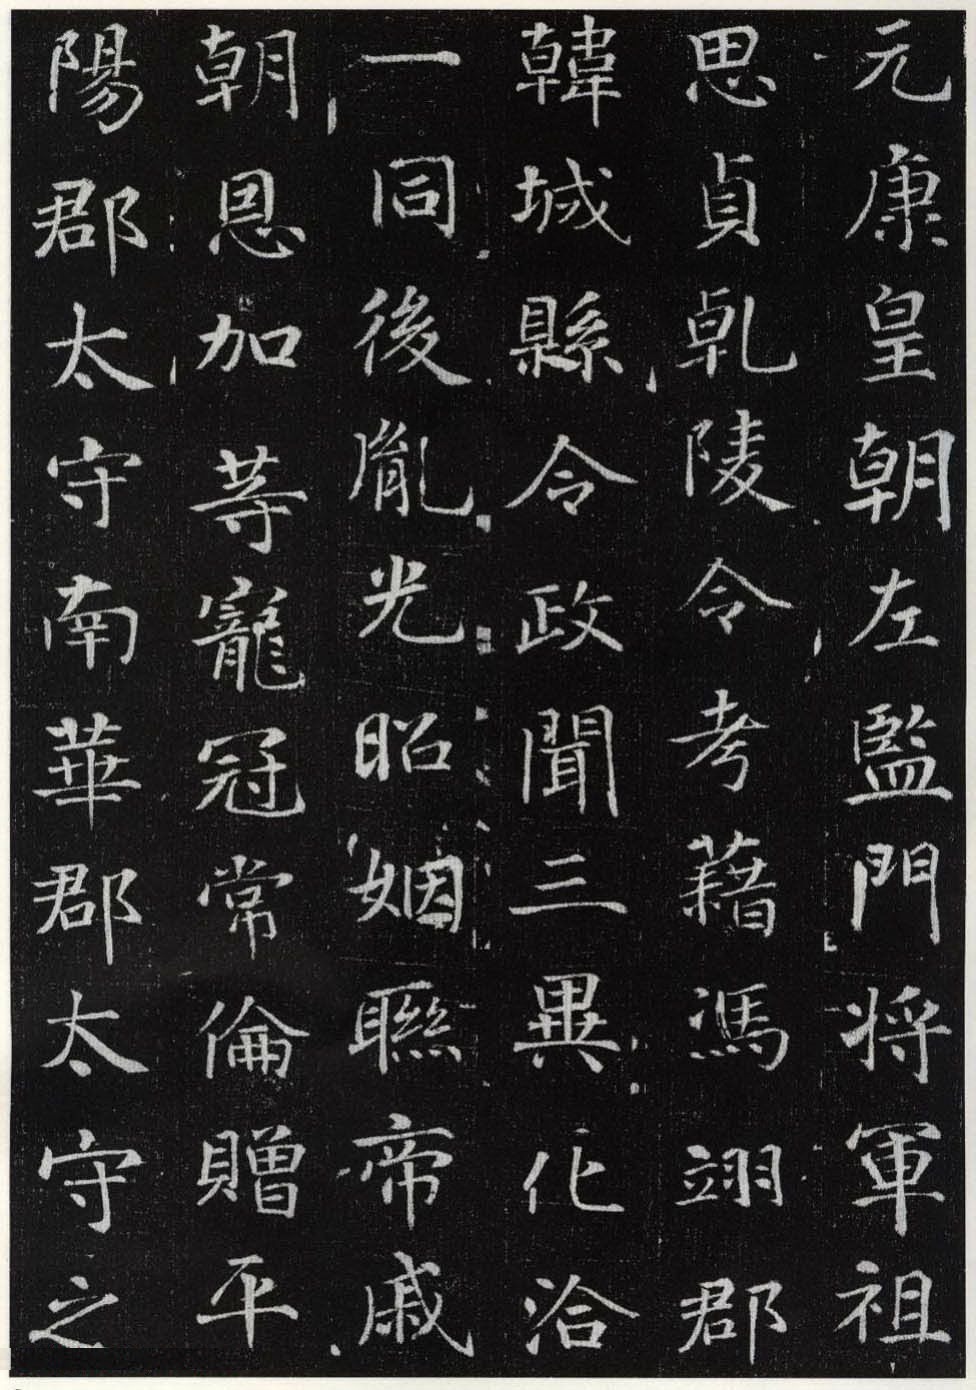 元康皇朝左監門将軍祖
思貞乹陵令考藉馮翊郡
韓城縣令政聞三異化洽
一同後胤光昭姻聮帝戚
朝恩加等寵冠常倫贈平
陽郡太守南華郡太守之